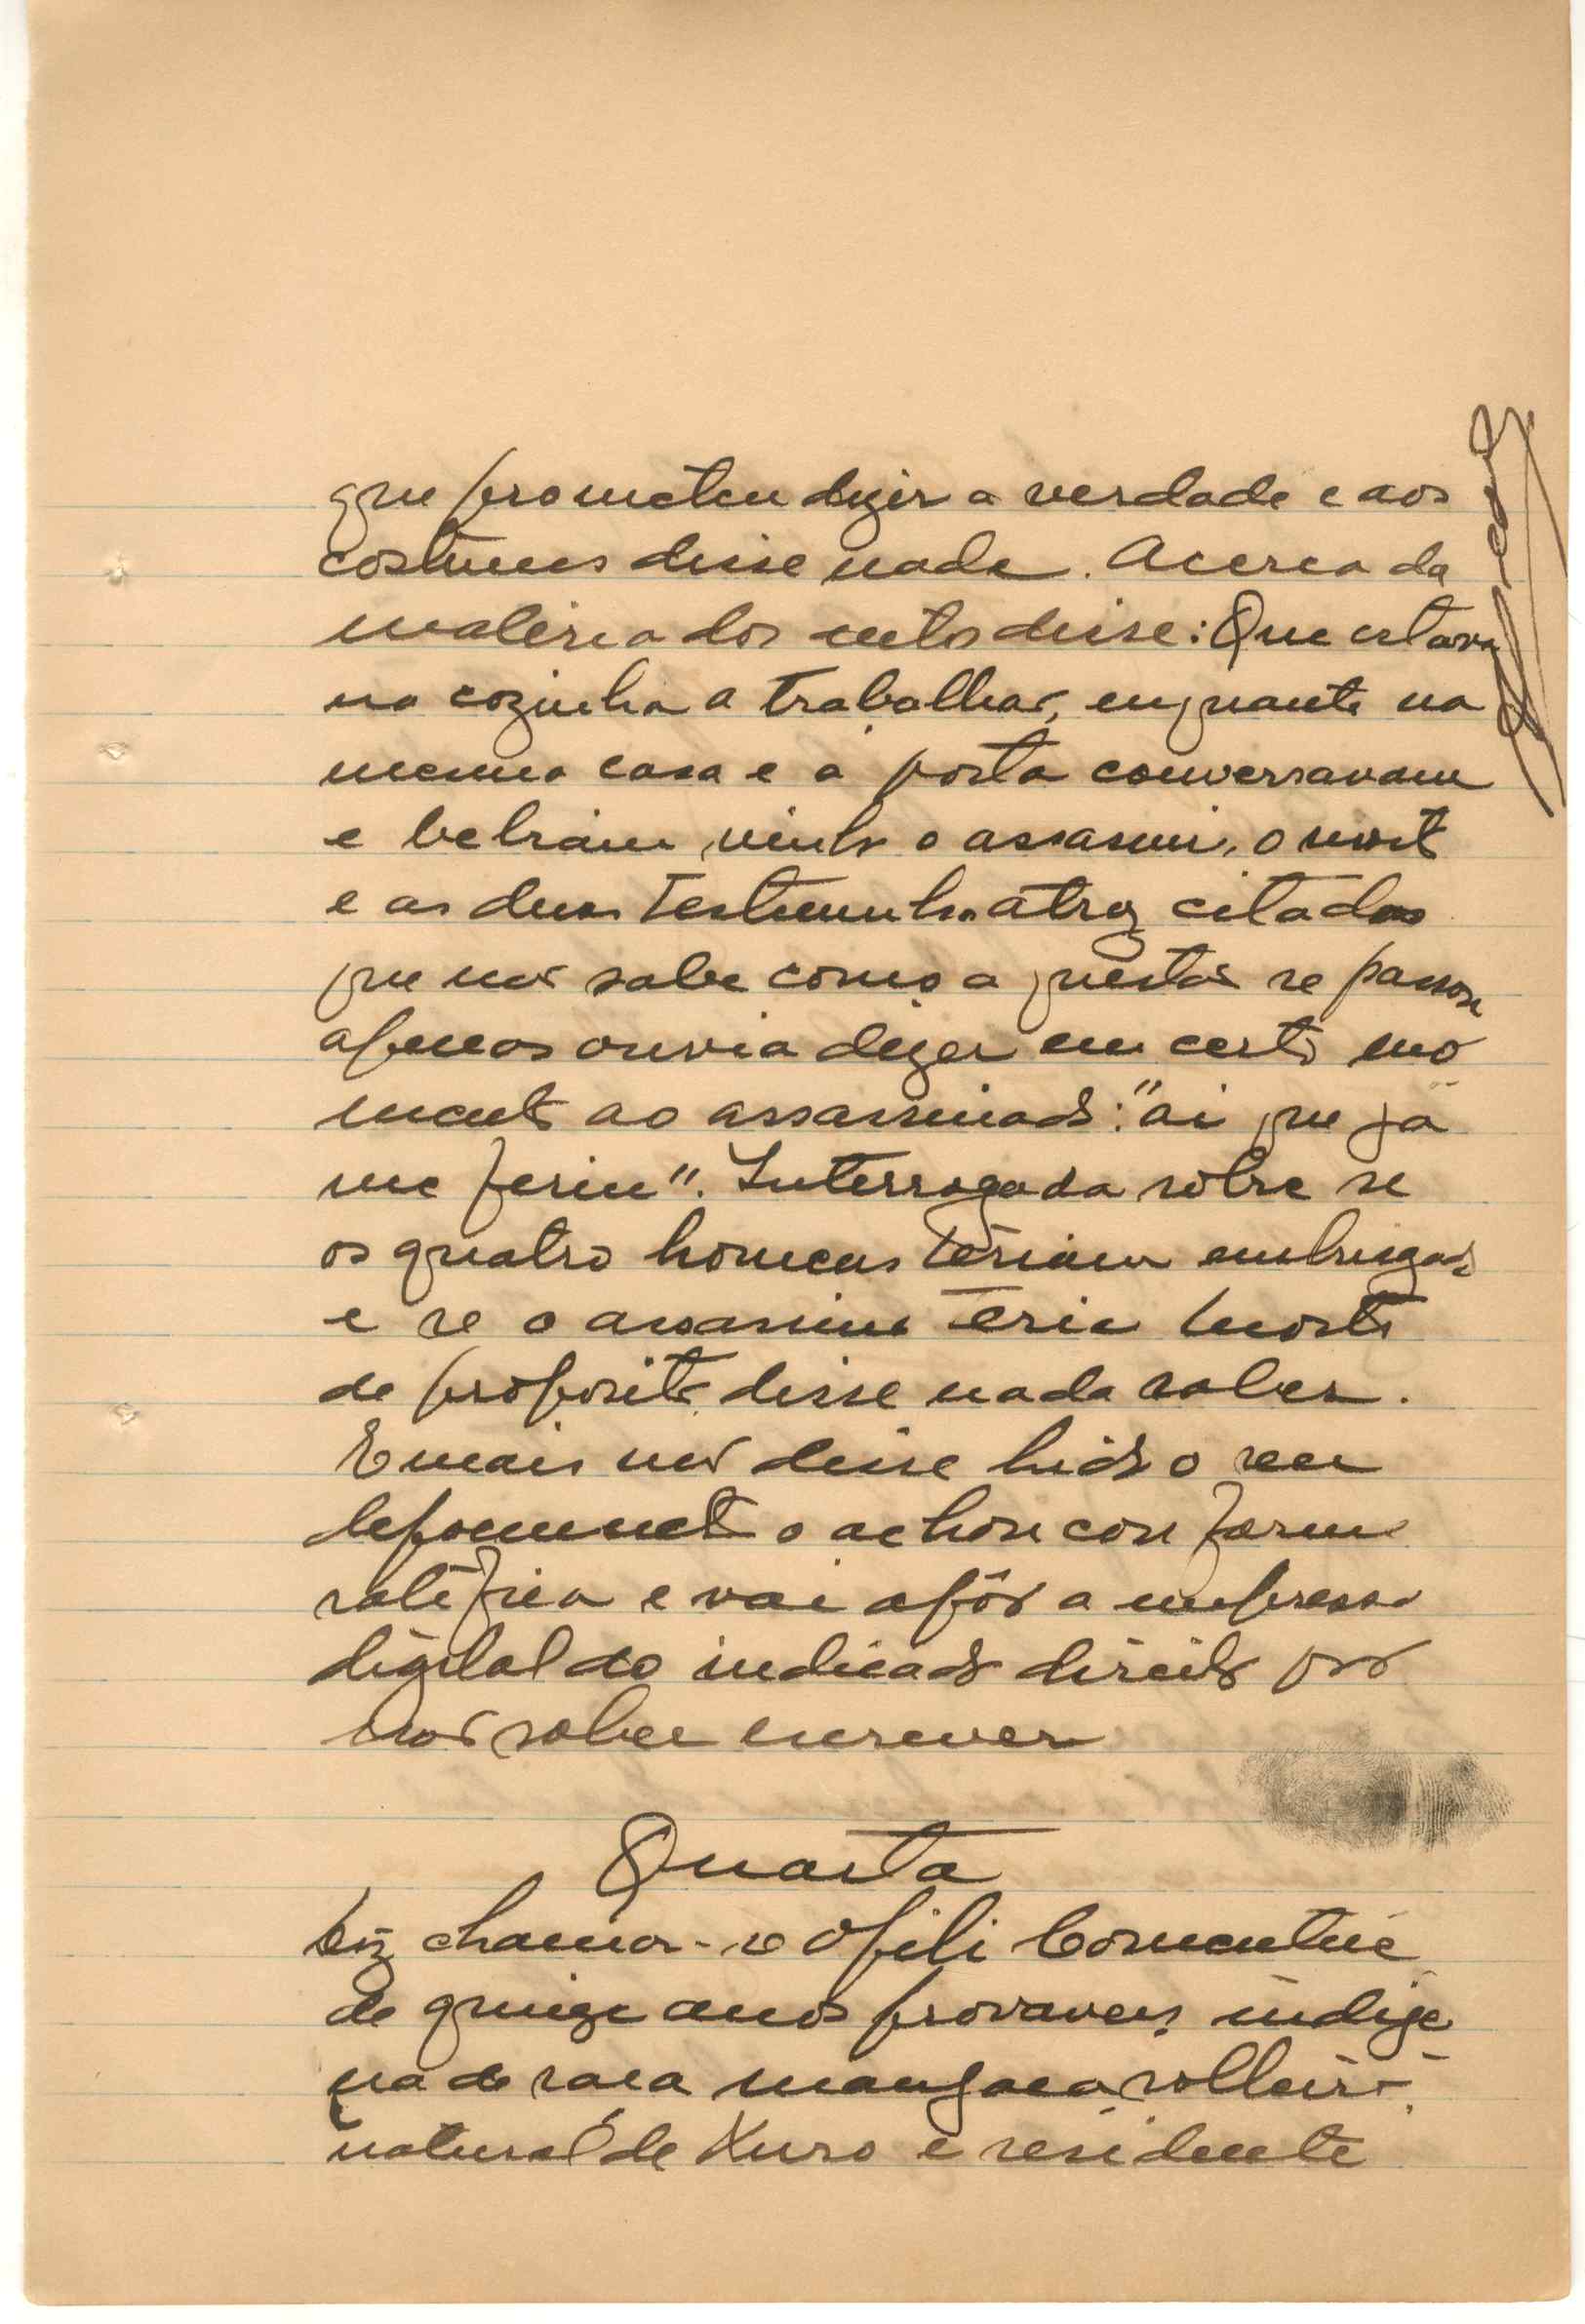 que prometeu dizer a verdade e aos
costumes disse nada. Acerca da
matéria dos autos disse: Que estava
na cozinha a trabalhar, enquanto na
mesma casa e à porta conversavam
e bebiam vinho o assassino, o morto
e as duas testemunhas atraz citadas
que não sabe como a questão se passou
apenas ouvia dizer em certo mo
mento ao assassinado: "ai que já
me feriu". Interrogada sôbre se
os quatro homens teriam embriagado
e se o assassino teria morto
de proposito, disse nada saber.
E mais não disse lido o seu
depoimento o achou conforme
ratifica e vai apôr a impressão
digital do indicador direito por
não saber escrever
Quarta
Diz chamar-se Ofili
de quinze anos provaveis, indige
na de raça mangaea, solteiro,
natural de Xuro e residente